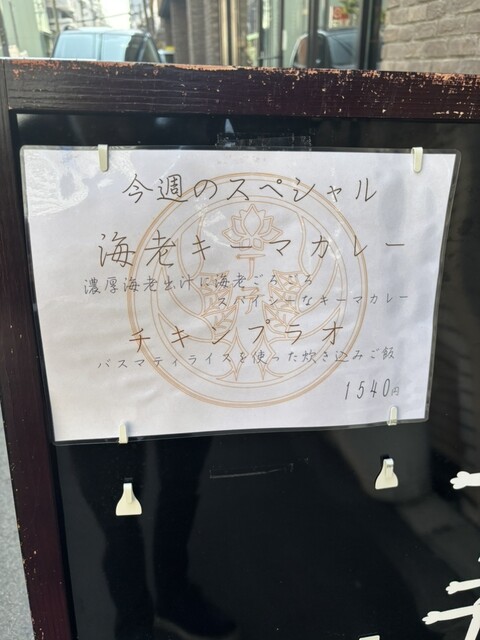 今週のスペシャル
海老キーマカレー
濃厚海老出汁に海老ごろごろ
スパイシーなキーマカレー
チキンプラオ
バスマティライスを使った炊き込みご飯
1540円